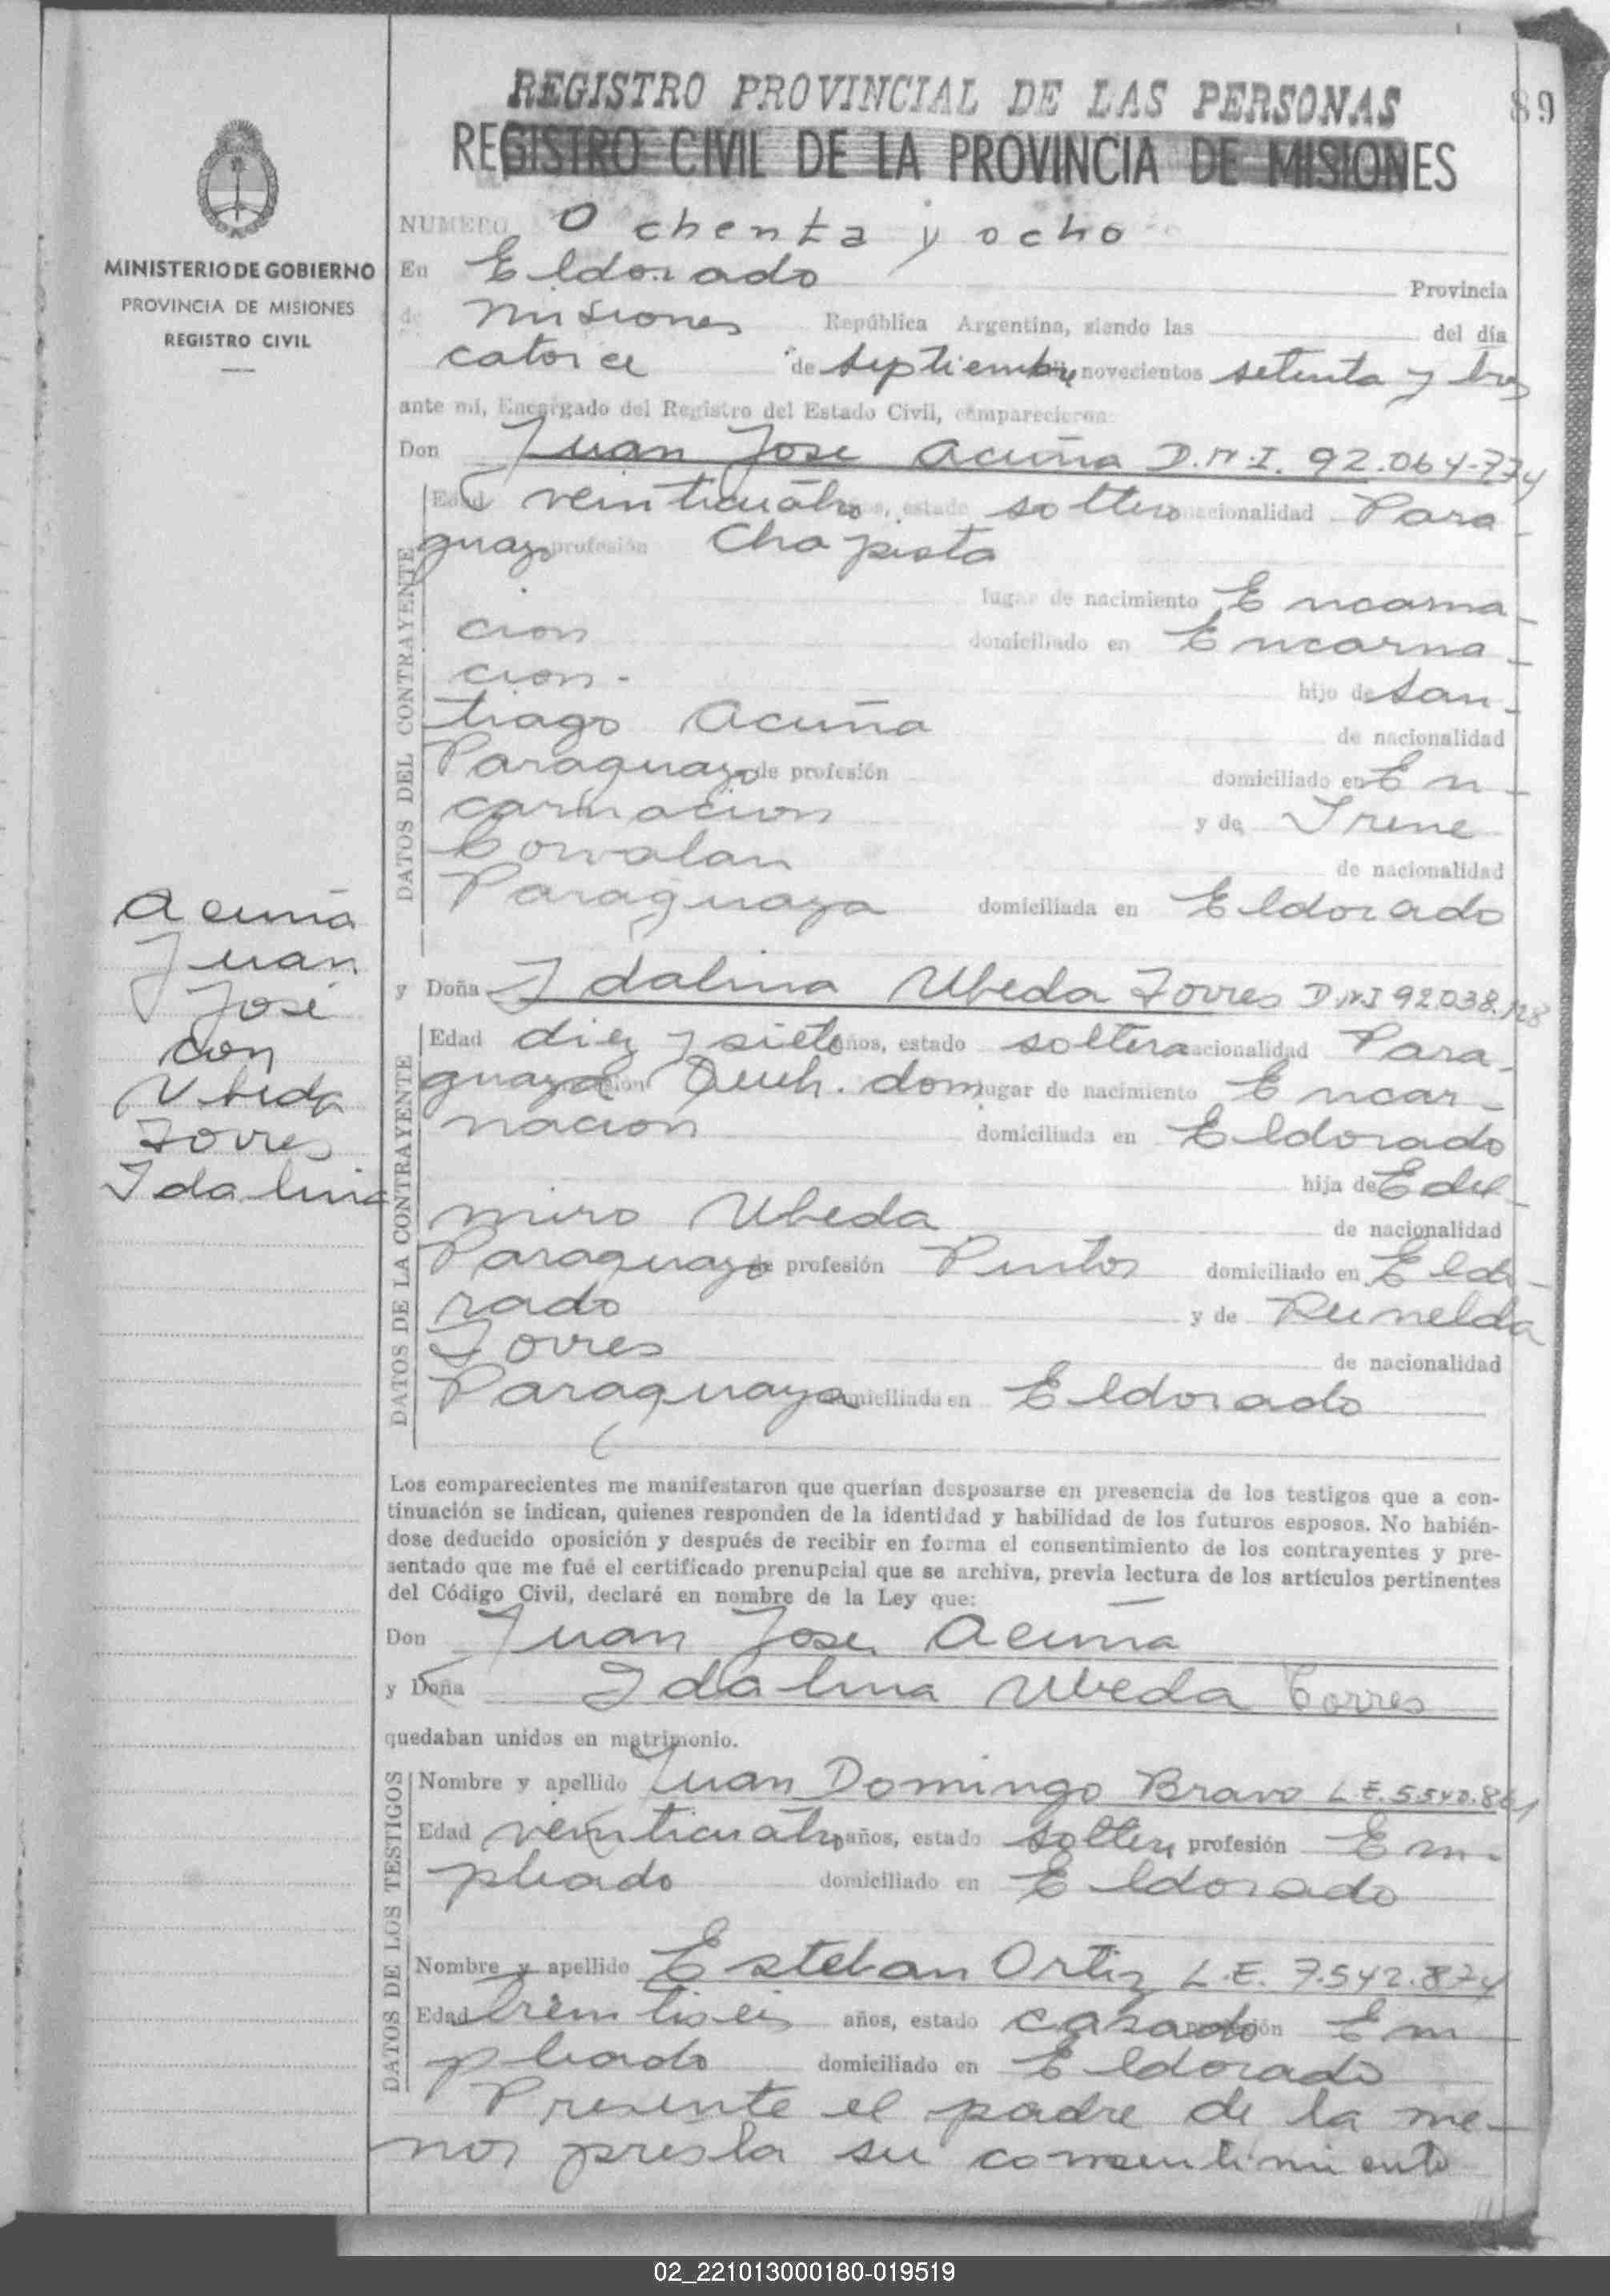 REGISTRO PROVINCIAL DE LAS PERSONAS
89
REGISTRO CIVIL DE LA PROVINCIA DE MISIONES
MINISTERIO DE GOBIERNO
PROVINCIA DE MISIONES
REGISTRO CIVIL
NUMERO Ochenta y ocho
En Eldorado Provincia
de Misiones República Argentina, siendo las del día
catorce de septiembre novecientos setenta y tres
ante mí, Encargado del Registro del Estado Civil, comparecieron:
Don Juan Jose Acuña D.N.I. 92.064.774
Edad veinticuatro años, estado soltero nacionalidad Para-
guayo profesión Chapista
lugar de nacimiento Encarna-
cion domiciliado en Encarna-
cion. hijo de San-
tiago Acuña de nacionalidad
Paraguayo de profesión domiciliado en En-
carnacion y de Irene
Corvalan de nacionalidad
Paraguaya domiciliada en Eldorado
DATOS DEL CONTRAYENTE
Acuña
Juan
José
con
Ubeda
Torres
Idalina
y Doña Idalina Ubeda Torres D.N.I 92.038.128
Edad diez y siete años, estado soltera nacionalidad Para-
guaya Queh. dom lugar de nacimiento Encar-
nacion domiciliada en Eldorado
hija de Edel-
miro Ubeda de nacionalidad
Paraguayo de profesión Pintor domiciliado en Eldo-
rado y de Reinelda
Torres de nacionalidad
Paraguaya domiciliada en Eldorado
DATOS DE LA CONTRAYENTE
Los comparecientes me manifestaron que querían desposarse en presencia de los testigos que a con-
tinuación se indican, quienes responden de la identidad y habilidad de los futuros esposos. No habién-
dose deducido oposición y después de recibir en forma el consentimiento de los contrayentes y pre-
sentado que me fué el certificado prenupcial que se archiva, previa lectura de los artículos pertinentes
del Código Civil, declaré en nombre de la Ley que:
Don Juan Jose Acuña
y Doña Idalina Ubeda Torres
quedaban unidos en matrimonio.
Nombre y apellido Juan Domingo Bravo L.E. 5.540.861
Edad veinticuatro años, estado soltero profesión Em-
pleado domiciliado en Eldorado
Nombre y apellido Esteban Ortiz L.E. 7.542.874
Edad treintiseis años, estado casado profesión Em
pleado domiciliado en Eldorado
DATOS DE LOS TESTIGOS
Presente el padre de la me-
nor presta su consentimiento
02_221013000180-019519